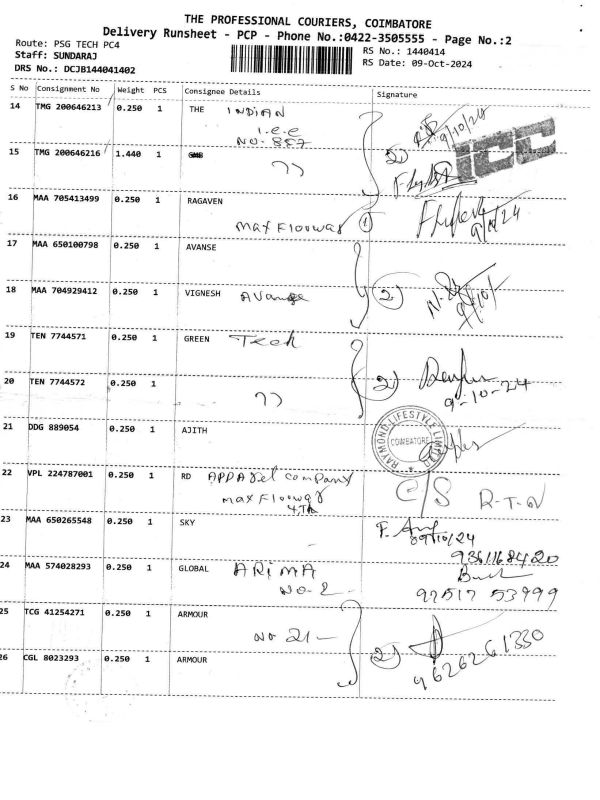 THE PROFESSIONAL COURIERS, COIMBATORE
Delivery Runsheet - PCP - Phone No.:0422-3505555 - Page No.:2
Route: PSG TECH PC4
RS No.: 1440414
Staff: SUNDARAJ
RS Date: 09-Oct-2024
DRS No.: DCJB144041402
S No Consignment No Weight PCS Consignee Details Signature
14 TMG 200646213 0.250 1 THE INDIAN
I.C.C
NO. 887
9/10/24
2)
ICC
15 TMG 200646216 1.440 1
16 MAA 705413499 0.250 1 RAGAVEN
Max Floowar 1
9/10/24
17 MAA 650100798 0.250 1 AVANSE
18 MAA 704929412 0.250 1 VIGNESH Avange 2)
9/10/
19 TEN 7744571 0.250 1 GREEN Tech
20 TEN 7744572 0.250 1 2)
9-10-24
21 DDG 889054 0.250 1 AJITH
RAYMOND LIFESTYLE LIMITED
COIMBATORE
22 VPL 224787001 0.250 1 RD APPArel company C/S R-T-N
Max Floowar
4th
23 MAA 650265548 0.250 1 SKY
09/10/24
9361168420
24 MAA 574028293 0.250 1 GLOBAL ARIMA
NO-2 97517 53999
25 TCG 41254271 0.250 1 ARMOUR
NO 21-
2)
26 CGL 8023293 0.250 1 ARMOUR
9626261330